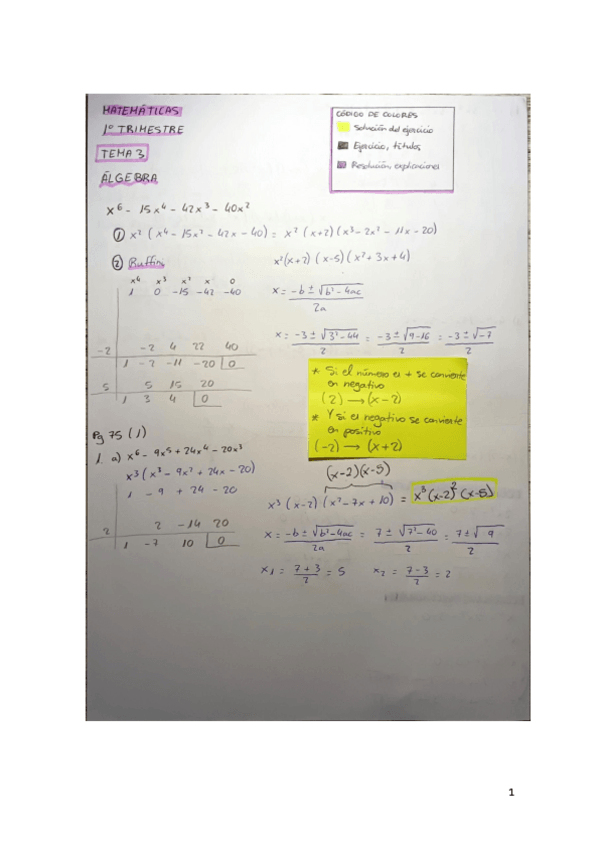 MATEMÁTICAS
1º TRIMESTRE
TEMA 3
ÁLGEBRA
CÓDIGO DE COLORES
Solución del ejercicio
Ejercicio, títulos
Resolución, explicaciones
x⁶ - 15x⁴ - 42x³ - 40x²
① x² (x⁴ - 15x² - 42x - 40) = x² (x+2) (x³ - 2x² - 11x - 20)
x² (x+2) (x-5) (x² + 3x + 4)
② Ruffini
x⁴ x³ x² x 0
1 0 -15 -42 -40
-2 -2 4 22 40
1 -2 -11 -20 0
5 5 15 20
1 3 4 0
x = -b ± √b² - 4ac / 2a
x = -3 ± √3² - 4·4 / 2 = -3 ± √9 - 16 / 2 = -3 ± √-7 / 2
* Si el número es + se convierte
en negativo
(2) → (x - 2)
* Y si es negativo se convierte
en positivo
(-2) → (x + 2)
Pg 75 (1)
1. a) x⁶ - 9x⁵ + 24x⁴ - 20x³
x³ (x³ - 9x² + 24x - 20)
1 - 9 + 24 - 20
2 2 -14 20
1 -7 10 0
(x-2)(x-5)
x³ (x-2) (x² - 7x + 10) = x³ (x-2)² (x-5)
x = -b ± √b² - 4ac / 2a = 7 ± √7² - 40 / 2 = 7 ± √9 / 2
x₁ = 7 + 3 / 2 = 5 x₂ = 7 - 3 / 2 = 2
1